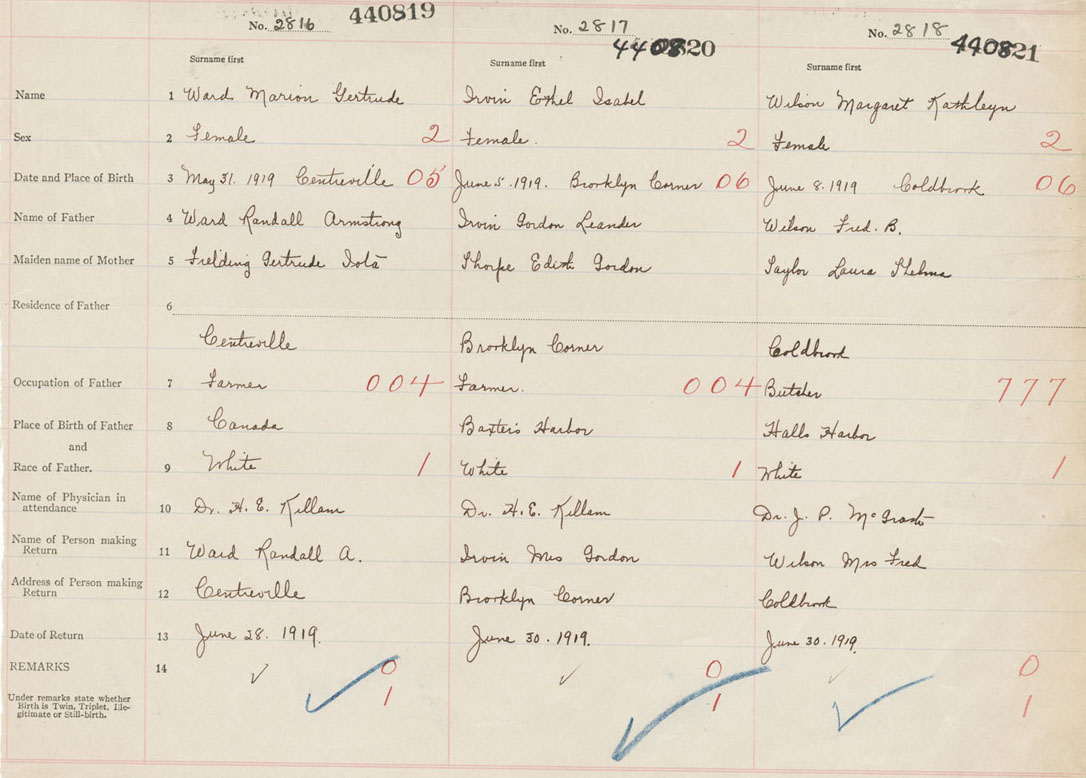 No. 2816 440819 No. 2817 440820 No. 2818 440821
Surname first Surname first Surname first
Name 1 Ward Marion Gertrude Irvin Ethel Isabel Wilson Margaret Kathleyn
Sex 2 Female 2 Female. 2 Female 2
Date and Place of Birth 3 May 31. 1919 Centreville 05 June 5. 1919. Brooklyn Corner 06 June 8. 1919 Coldbrook 06
Name of Father 4 Ward Randall Armstrong Irvin Gordon Leander Wilson Fred. B.
Maiden name of Mother 5 Fielding Gertrude Iola Thorpe Edith Gordon Taylor Laura Thelma
Residence of Father 6
Centreville Brooklyn Corner Coldbrook
Occupation of Father 7 Farmer 004 Farmer. 004 Butcher 777
Place of Birth of Father 8 Canada Baxters Harbor Halls Harbor
and
Race of Father. 9 White 1 White 1 White 1
Name of Physician in
attendance 10 Dr. H. E. Killam Dr. H. E. Killam Dr. J. P. McGrath
Name of Person making
Return 11 Ward Randall A. Irvin Mrs Gordon Wilson Mrs Fred
Address of Person making
Return 12 Centreville Brooklyn Corner Coldbrook
Date of Return 13 June 28. 1919. June 30. 1919. June 30. 1919.
REMARKS 14 ✓ 0 ✓ 0 ✓ 0
Under remarks state whether
Birth is Twin, Triplet, Ille-
gitimate or Still-birth. 1 1 1